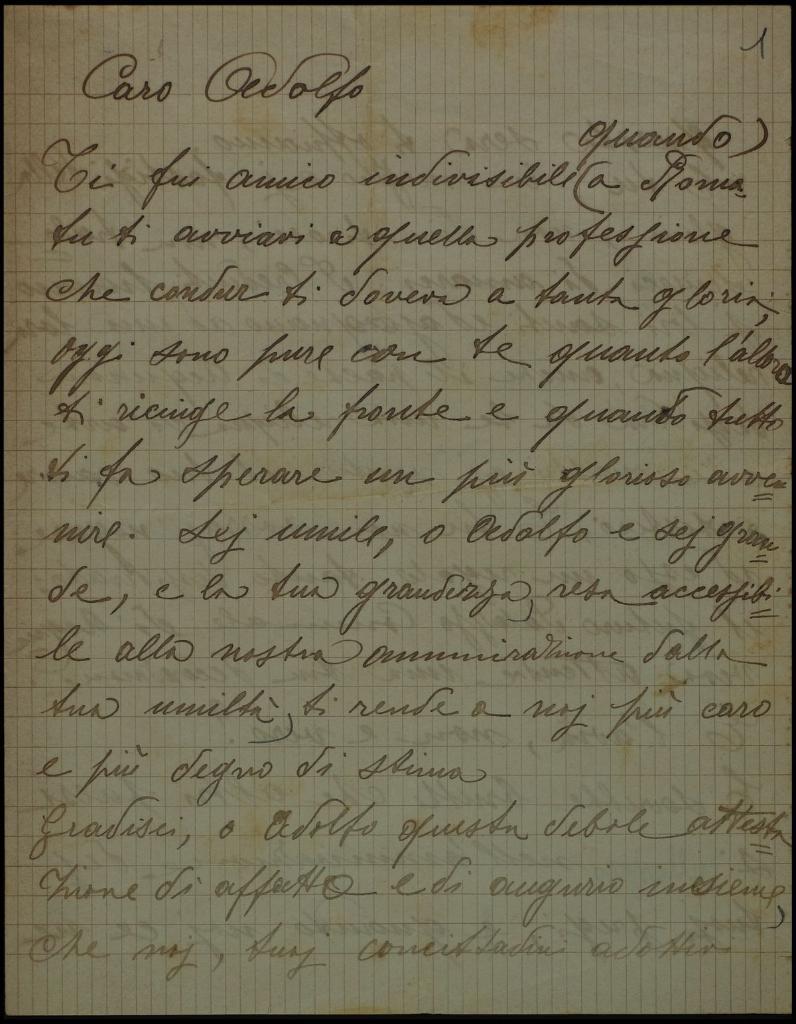 1
Caro Adolfo
quando)
Ti fui amico indivisibile (a Roma
tu ti avviavi a quella professione
che condur ti doveva a tanta gloria;
oggi sono pure con te quanto l'alloro
ti ricinge la fronte e quando tutto
ti fa sperare un più glorioso avve
nire. Sej umile, o Adolfo e sej gran
de, e la tua grandezza, resa accessibi
le alla nostra ammirazione dalla
tua umiltà, ti rende a noj più caro
e più degno di stima
Gradisci, o Adolfo questa debole attesta
zione di affetto e di augurio insieme,
che noj, tuoj concittadini adottivi